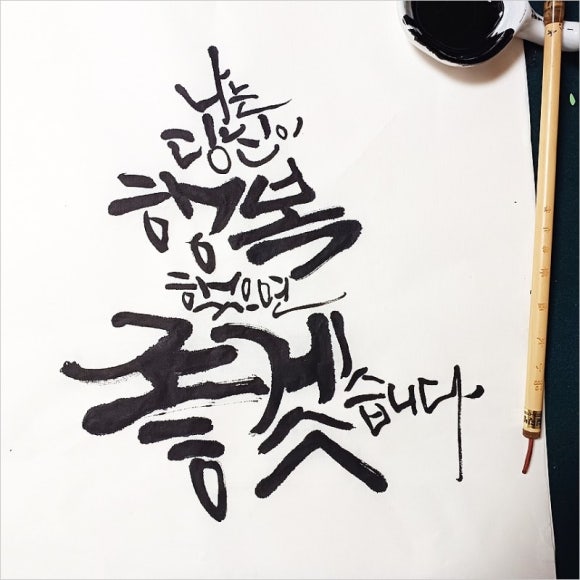 나는
당신이
행복
했으면
좋겠습니다